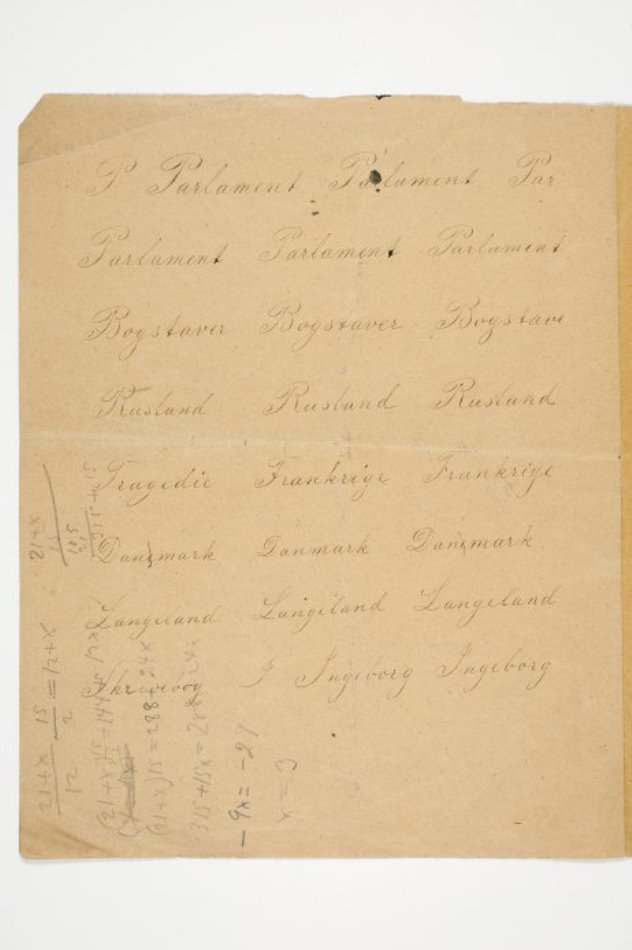 P Parlament Parlament Par
Parlament Parlament Parlament
Bogstaver Bogstaver Bogstave
Rusland Rusland Rusland
Tragedie Frankrige Frankrige
Danmark Danmark Danmark
Langeland Langeland Langeland
Skrivebog I Ingeborg Ingeborg
21+x
(21+x)15 = 288 + 24x
315+15x = 288
-9x = -27
x = 3